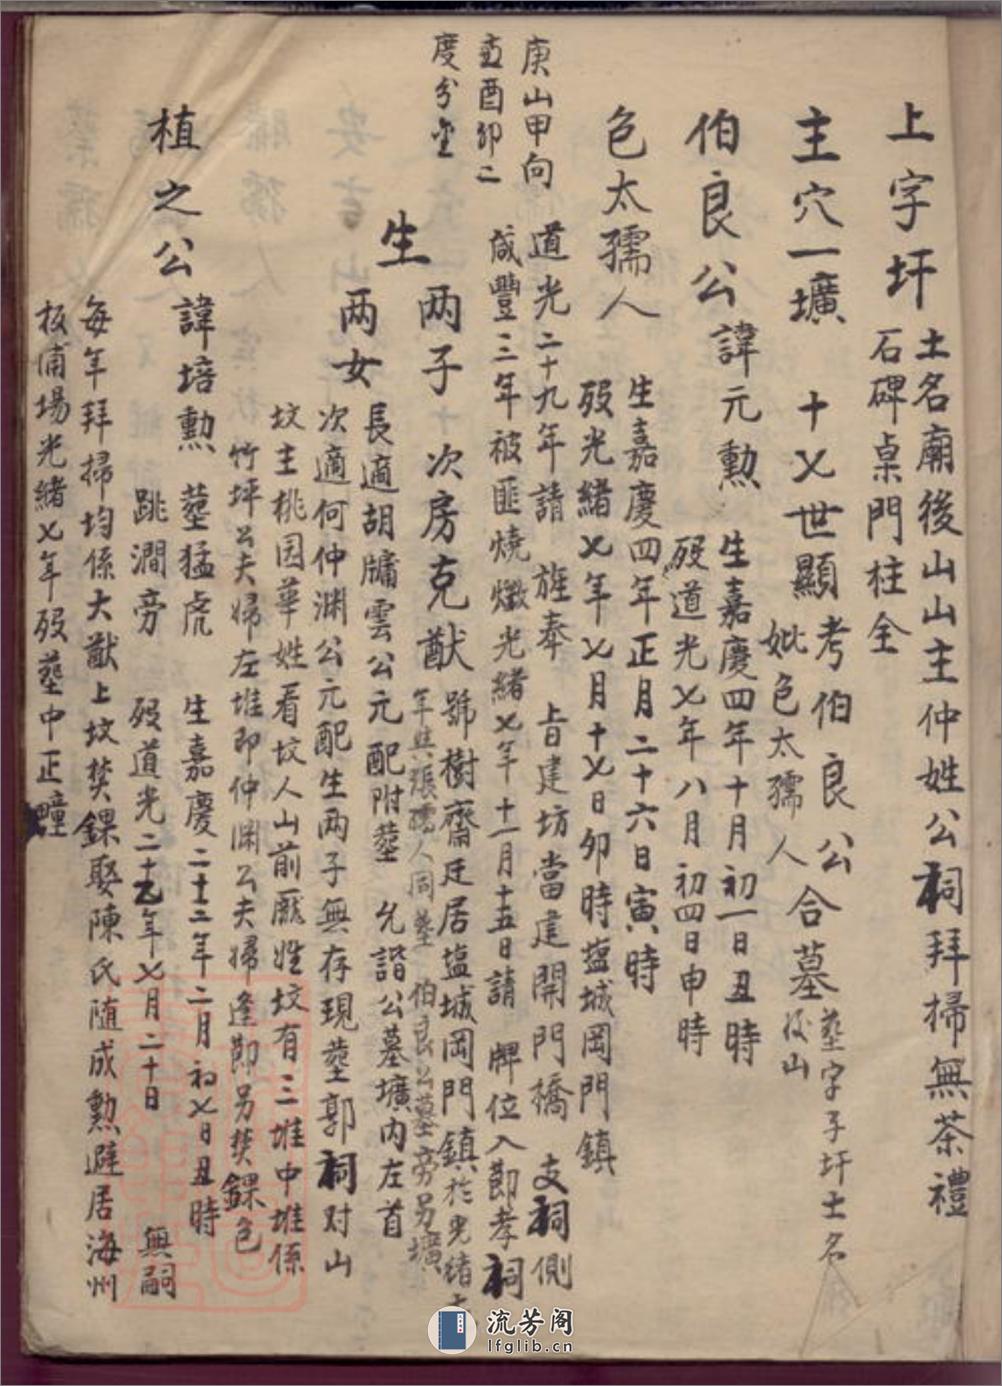 上字圩
土名廟後山山主仲姓公祠拜掃無茶禮
石碑桌門柱全
主穴一壙
十七世顯考伯良公合墓
妣色太孺人
塟字子圩土名
後山
伯良公
諱元勲
生嘉慶四年十月初一日丑時
殁道光七年八月初四日申時
色太孺人
生嘉慶四年正月二十六日寅時
殁光緒七年七月十七日卯時塩城岡門鎮
庚山甲向
酉卯二
度分金
道光二十九年請 旌奉 旨建坊當建開門橋 支祠側
咸豐三年被匪燒燬光緒七年十一月十五日請 牌位入節孝祠
生
两子
次房克猷
號樹齋迁居塩城岡門鎮於光緒
年與張孺人同塟 伯良公墓旁另壙
两女
長適胡牗雲公元配附塟 允諧公墓壙内左首
次適何仲渊公元配生两子無存現塟郭祠对山
坟主桃园華姓看坟人山前厳姓坟有三堆中堆係
竹坪公夫婦左堆即仲渊公夫婦逢節另焚錁色
植之公
諱培勲
塟猛虎
跳澗旁
生嘉慶二十二年二月初七日丑時
殁道光二十七年七月二十日 無嗣
每年拜掃均係大猷上坟焚錁娶陳氏随成勲避居海州
板浦場光緒七年殁塟中正疃
流芳阁
lfglib.cn